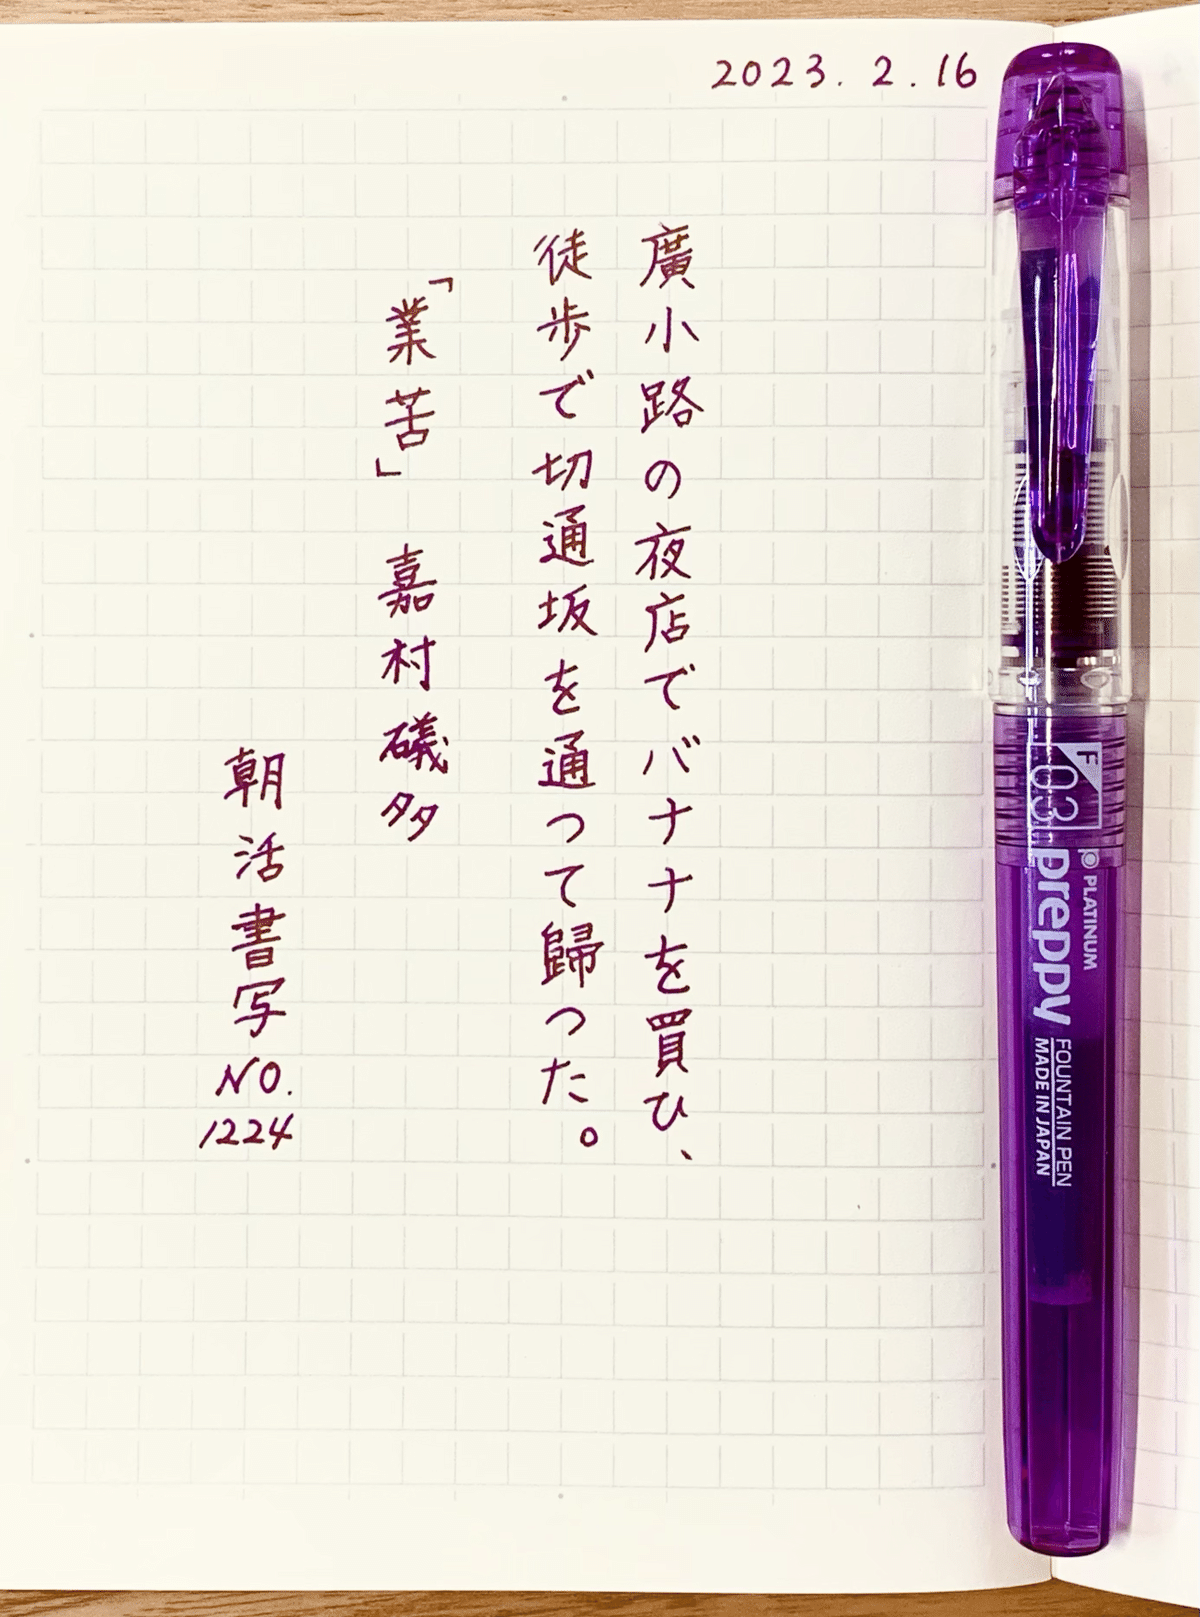 2023. 2. 16
廣小路の夜店でバナナを買ひ、
徒歩で切通坂を通つて歸つた。
「業苦」 嘉村礒多
朝活書写
NO.
1224
F
03
PLATINUM
preppy
FOUNTAIN PEN
MADE IN JAPAN